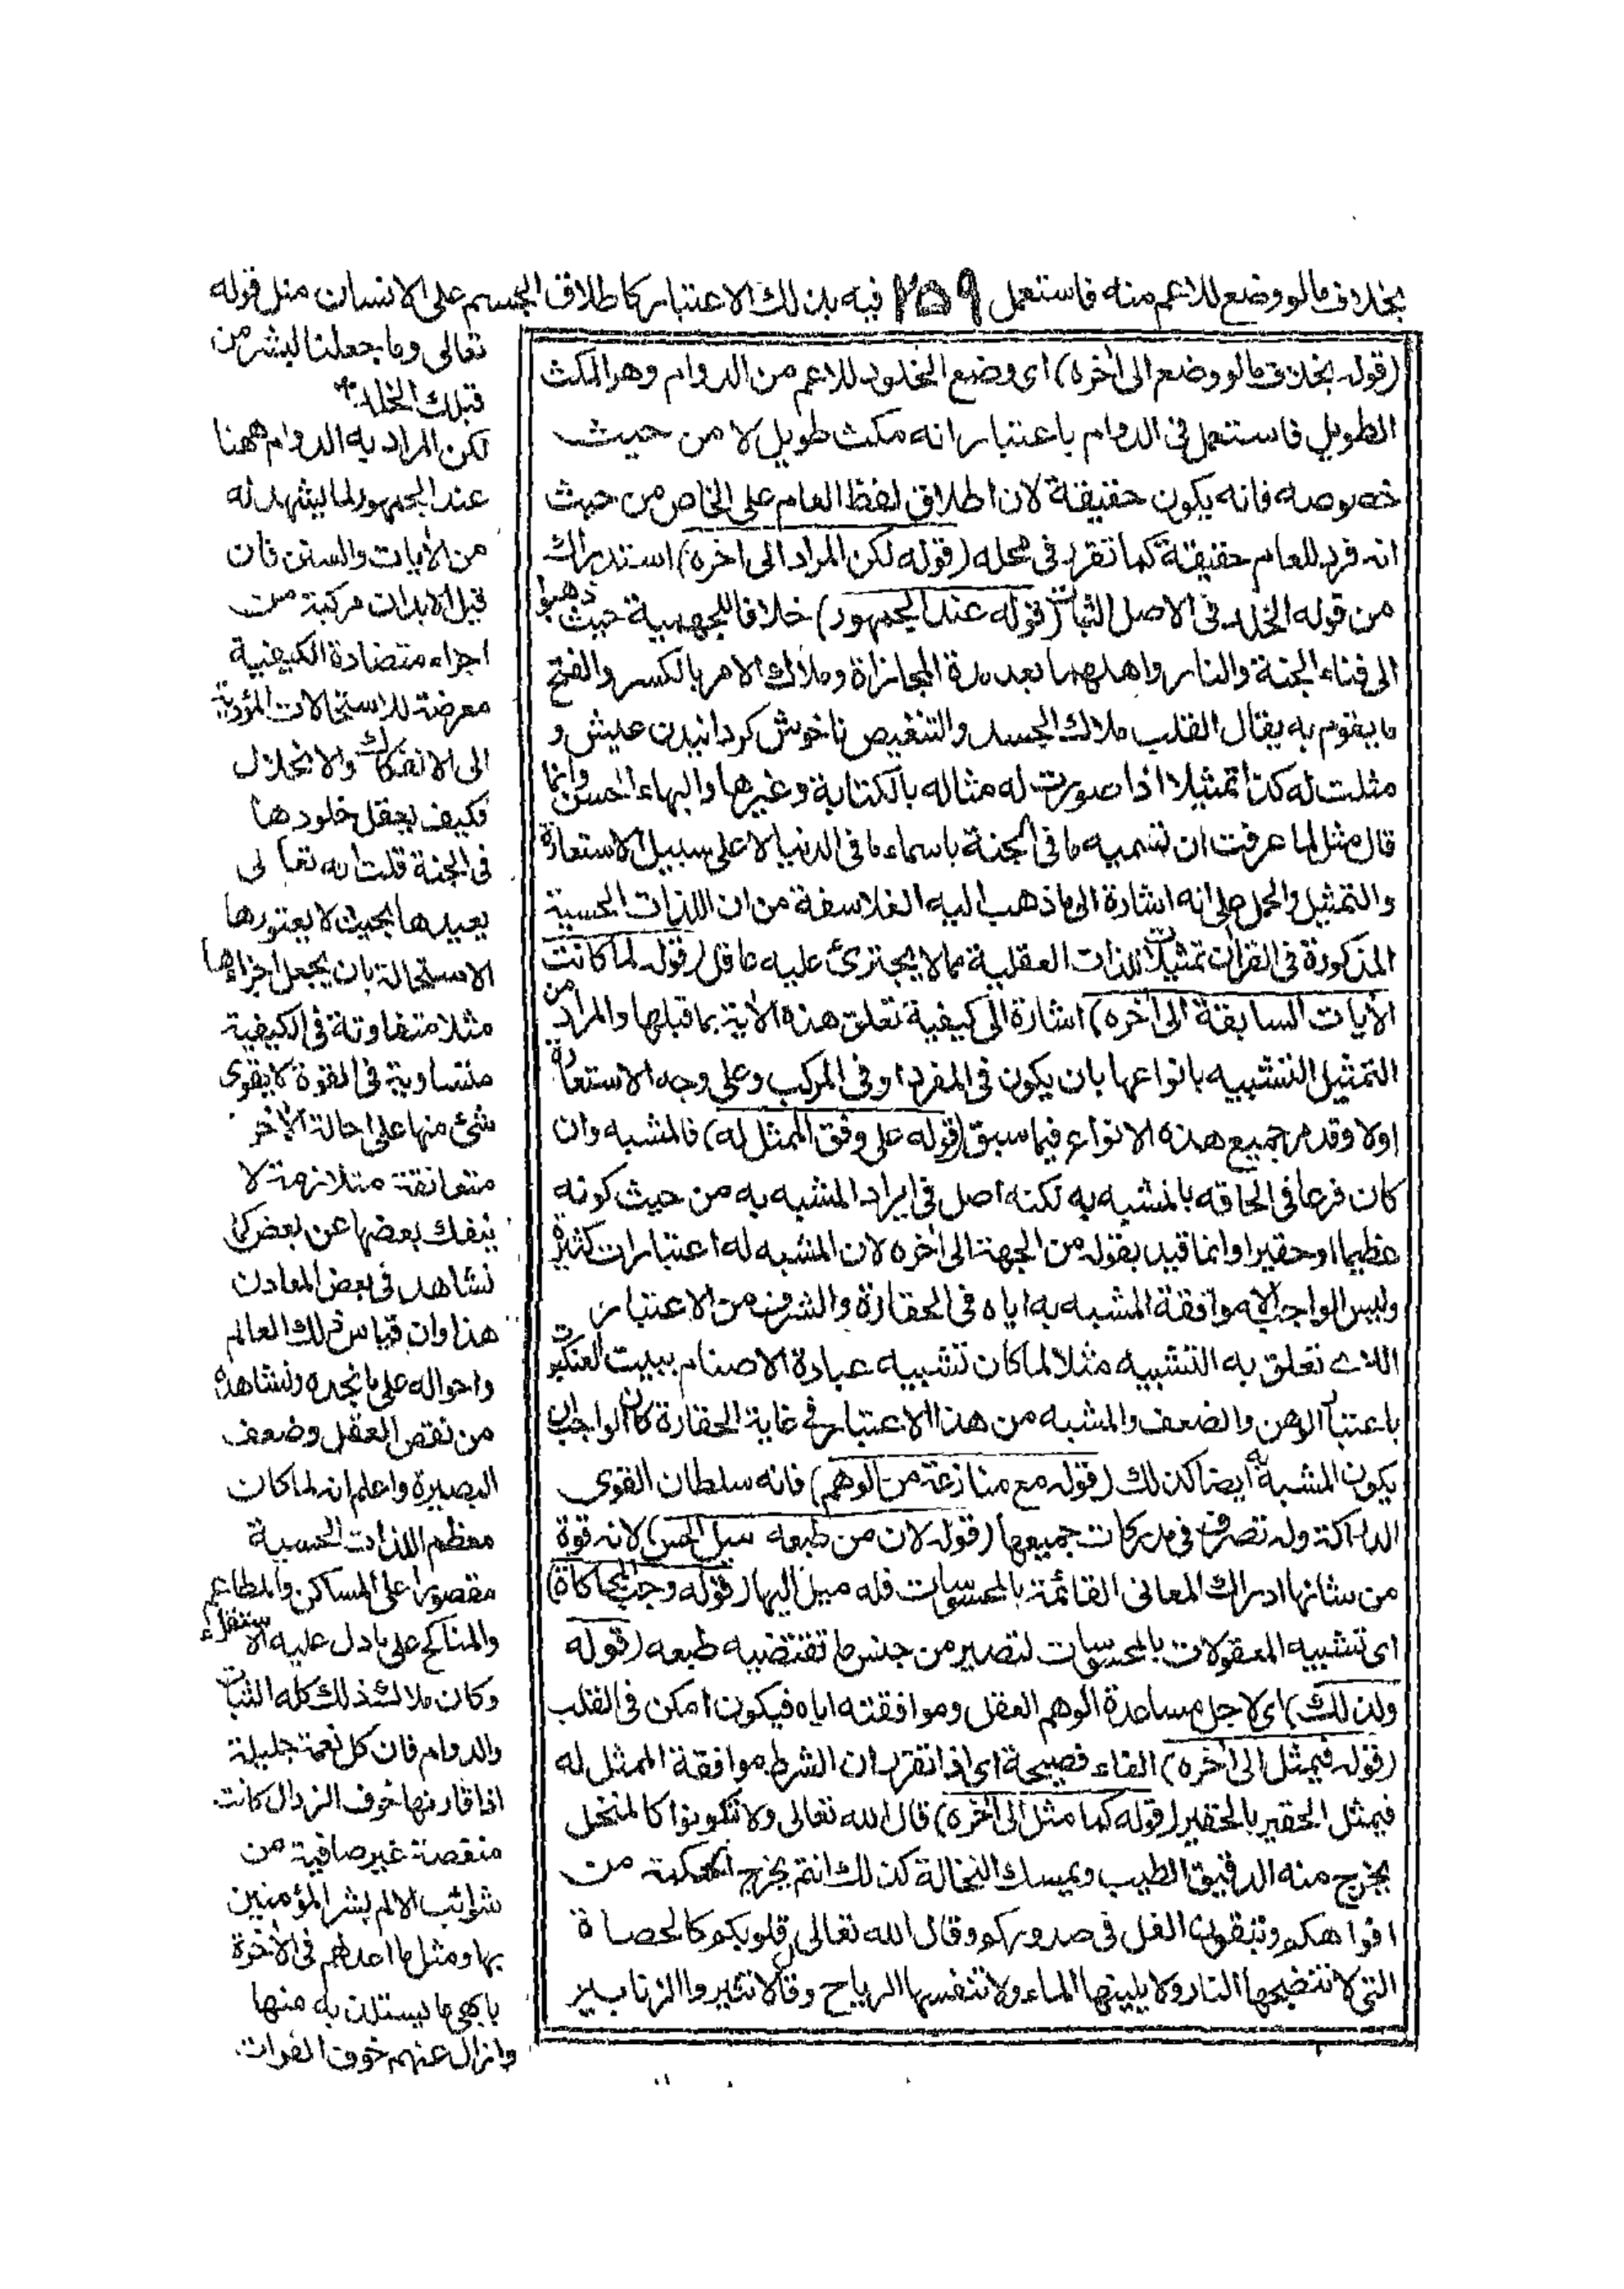 بخلاف مالو وضع للاعم منه فاستعمل ٢٥٩ فيه بذلك الاعتبار كاطلاق الجسم على الانسان مثل قوله
تعالى وما جعلنا لبشر من
قبلك الخلد
لكن المراد به الدوام ههنا
عند الجمهور لما يشهد له
من الأيات والسنن فان
قيل الابدان مركبة من
اجزاء متضادة الكيفية
معرضة للاستحالات المؤدية
الى الانفكاك والانحلال
فكيف يعقل خلودها
فى الجنة قلت انه تعالى
يعيدها بحيث لا يعتورها
الاستحالة بان يجعل اجزاءها
مثلا متفاوتة فى الكيفية
متساوية فى القوة لا يقوى
شئ منها على احالة الأخر
متعانقة متلازمة لا
ينفك بعضها عن بعض كما
نشاهد فى بعض المعادن
هذا وان قياس ذلك العالم
واحواله على ما نجده ونشاهده
من نقص العقل وضعف
البصيرة واعلم انه لما كان
معظم اللذات الحسية
مقصورا على المساكن والمطاعم
والمناكح على ما دل عليه الاستقراء
وكان ملاك ذلك كله الثبات
والدوام فان كل نعمة جليلة
اذا قارنها خوف الزوال كانت
منغصة غير صافية من
شوائب الالم بشر المؤمنين
بها ومثل ما اعد لهم فى الأخرة
بابهى ما يستلذ به منها
وازال عنهم خوف الفوات
(قوله بخلاف مالو وضع الى أخره) اى وضع الخلود للاعم من الدوام وهو المكث
الطويل فاستعمل فى الدوام باعتبار انه مكث طويل لا من حيث
خصوصه فانه يكون حقيقة لان اطلاق لفظ العام على الخاص من حيث
انه فرد للعام حقيقة كما تقرر فى محله (قوله لكن المراد الى اخره) استدراك
من قوله الخلد فى الاصل الثبات (قوله عند الجمهور) خلافا للجهمية حيث ذهبوا
الى فناء الجنة والنار واهلهما بعد مدة المجازاة وملاك الامر بالكسر والفتح
ما يقوم به يقال القلب ملاك الجسد والتنغيص ناخوش كردانيدن عيش و
مثلت له كذا تمثيلا اذا صورت له مثاله بالكتابة وغيرها والبهاء الحسن وانما
قال مثل لما عرفت ان تسميه ما فى الجنة باسماء ما فى الدنيا لا على سبيل الاستعارة
والتمثيل والحمل على انه اشارة الى ما ذهب اليه الفلاسفة من ان اللذات الحسية
المذكورة فى القرأن تمثيلات للذات العقلية مما لا يجترئ عليه عاقل (قوله لما كانت
الأيات السابقة الى أخره) اشارة الى كيفية تعلق هذه الأية بما قبلها والمراد من
التمثيل التشبيه بانواعها بان يكون فى المفرد او فى المركب وعلى وجه الاستعارة
اولا وقد مر جميع هذه الانواع فيما سبق (قوله على وفق الممثل له) فالمشبه وان
كان فرعا فى الحاقه بالمشبه به لكنه اصل فى ايراد المشبه به من حيث كونه
عظيما او حقيرا وانما قيد بقوله من الجهة الى أخره لان المشبه له اعتبارات كثيرة
وليس الواجب الا موافقة المشبه به اياه فى الحقارة والشرف من الاعتبار
الذى تعلق به التشبيه مثلا لما كان تشبيه عبادة الاصنام ببيت العنكبوت
باعتبار الوهن والضعف والمشبه من هذا الاعتبار فى غاية الحقارة كان الواجب ان
يكون المشبه به ايضا كذلك (قوله مع منازعة من الوهم) فانه سلطان القوى
الدراكة وله تصرف فى مدركات جميعها (قوله لان من طبعه ميل الحس) لانه قوة
من شانها ادراك المعانى القائمة بالمحسوسات فله ميل اليها (قوله وحب المحاكاة)
اى تشبيه المعقولات بالمحسوسات لتصير من جنس ما تقتضيه طبعه (قوله
ولذلك) اى لاجل مساعدة الوهم العقل وموافقته اياه فيكون امكن فى القلب
(قوله فيمثل الى أخره) الفاء فصيحة اى اذا تقرر ان الشرط موافقة الممثل له
فيمثل الحقير بالحقير (قوله كما مثل الى أخره) قال الله تعالى ولا تكونوا كالمنخل
يخرج منه الدقيق الطيب ويمسك النخالة كذلك انتم يخرج الحكمة من
افواهكم وتبقون الغل فى صدوركم وقال الله تعالى قلوبكم كالحصاة
التى لا تنضجها النار ولا يلينها الماء ولا تنسفها الرياح وقال لا تثيروا الزنابير